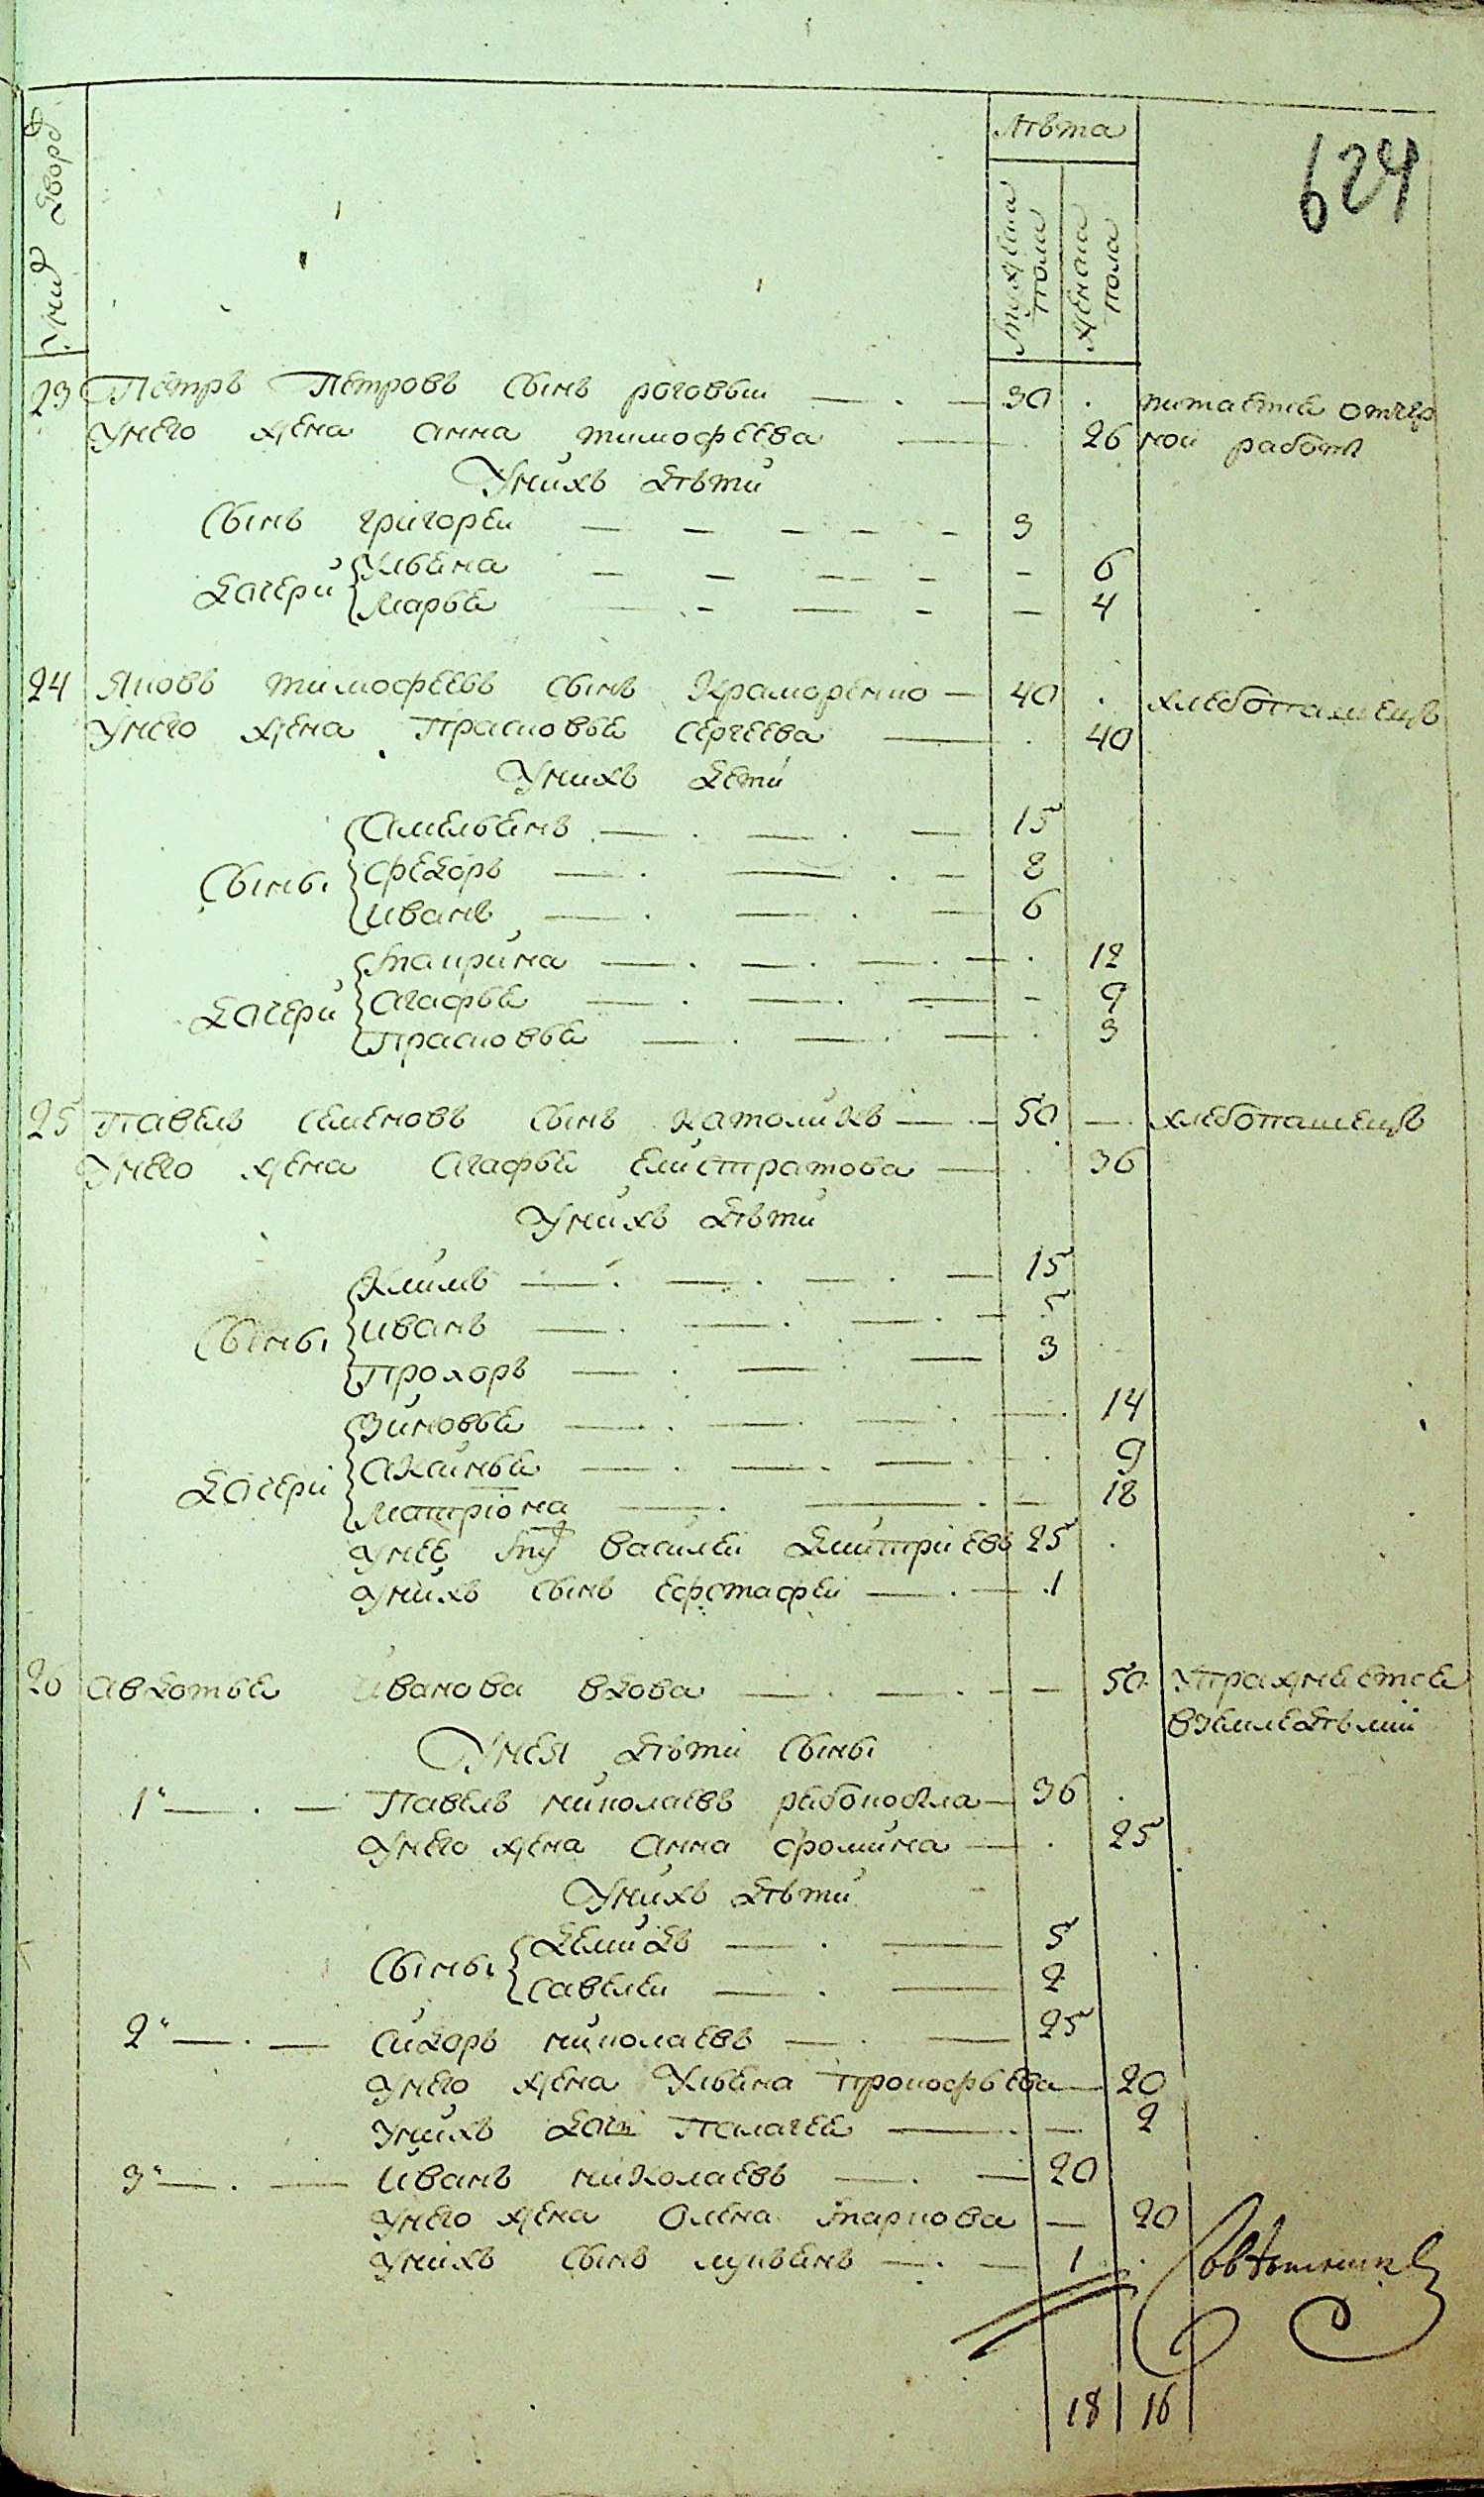 624
Число дворовъ
Лѣта
мужеска пола
женска пола
23 Петръ Петровъ сынъ роговыи 30 питаетца отчер
Унего жена анна тимофеева 26 нои работы
Унихъ дѣти
Сынъ григореи 3
Дочери Ульяна 6
Марья 4
24 Яковъ тимофеевъ сынъ Краморенко 40 хлебопашецъ
Унего жена Прасковья сергеева 40
Унихъ дети
Сыны Амельянъ 15
Федоръ 8
Иванъ 6
Дочери Маирина 12
Агафья 9
Прасковья 3
25 Павелъ семеновъ сынъ католикъ 50 хлебопашецъ
Унего жена Агафья елистратова 36
Унихъ дѣти
Сыны Климъ 15
Иванъ 5
Прохоръ 3
Дочери Зиновья 14
Акинья 9
Матріона 18
Унее му василеи дмитріевъ 25
Унихъ сынъ ефстафеи 1
26 авдотья иванова вдова 50 Упражняетса
вземледѣліи
Унея дѣти сыны
1 Павелъ николаевъ рябокобила 36
Унего жена анна фомина 25
Унихъ дѣти
Сыны Демидъ 5
Савелеи 2
2 Сидоръ николаевъ 25
Унего жена Ульяна прокофьева 20
Унихъ дочь Палагея 2
3 Иванъ николаевъ 20
Унего жена Олена маркова 20
Унихъ сынъ лукьянъ 1
18 16